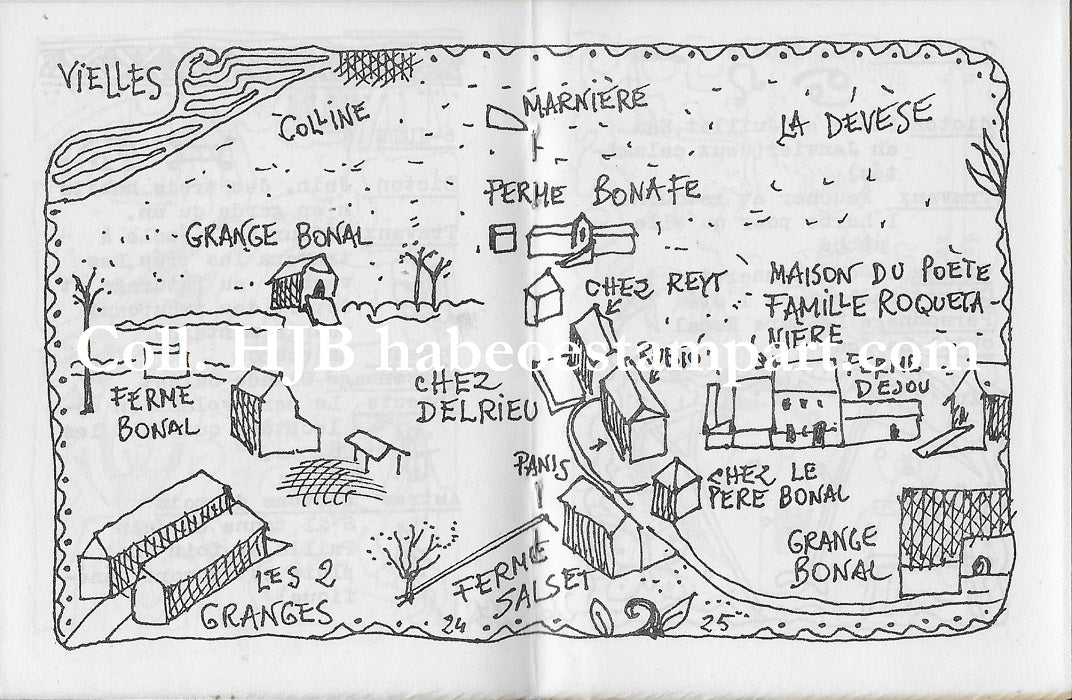 VIELLES
COLLINE
MARNIÈRE
LA DEVÈSE
FERME BONAFE
GRANGE BONAL
CHEZ REYT
MAISON DU POETE
FAMILLE ROQUETA-
NIERE
Coll. HJB habeoestampart.com
FERME
DEJOU
FERME
BONAL
CHEZ
DELRIEU
PANIS
CHEZ LE
PERE BONAL
GRANGE
BONAL
LES 2
GRANGES
FERME
SALSET
24
25